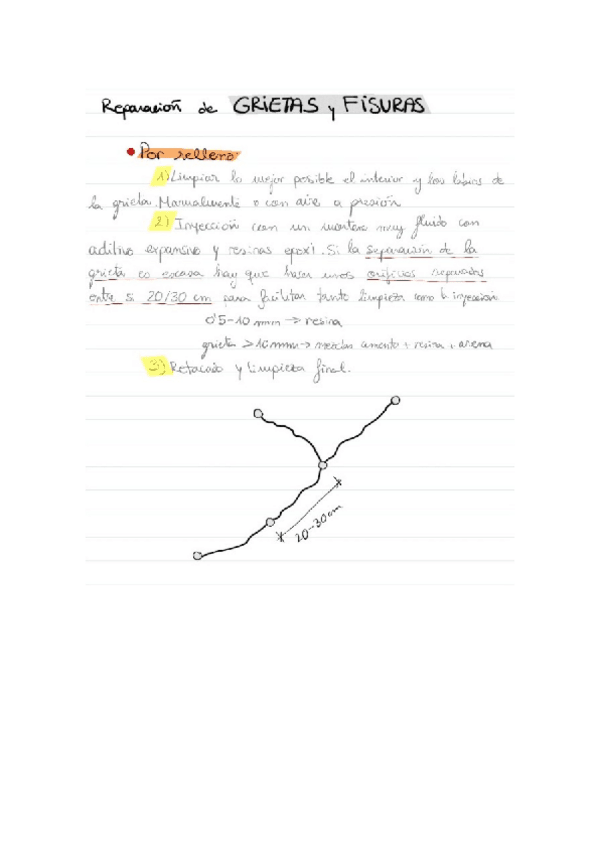 Reparación de GRIETAS y FISURAS
• Por relleno
1) Limpiar lo mejor posible el interior y los labios de
la grieta. Manualmente o con aire a presión
2) Inyección con un mortero muy fluido con
aditivo expansivo y resinas epoxi. Si la separación de la
grieta es escasa hay que hacer unos orificios separados
entre si 20/30 cm para facilitar tanto limpieza como la inyección
0'5-10 mm → resina
grieta > 10 mm → mezclar cemento + resina + arena
3) Retacado y limpieza final.
20-30 cm